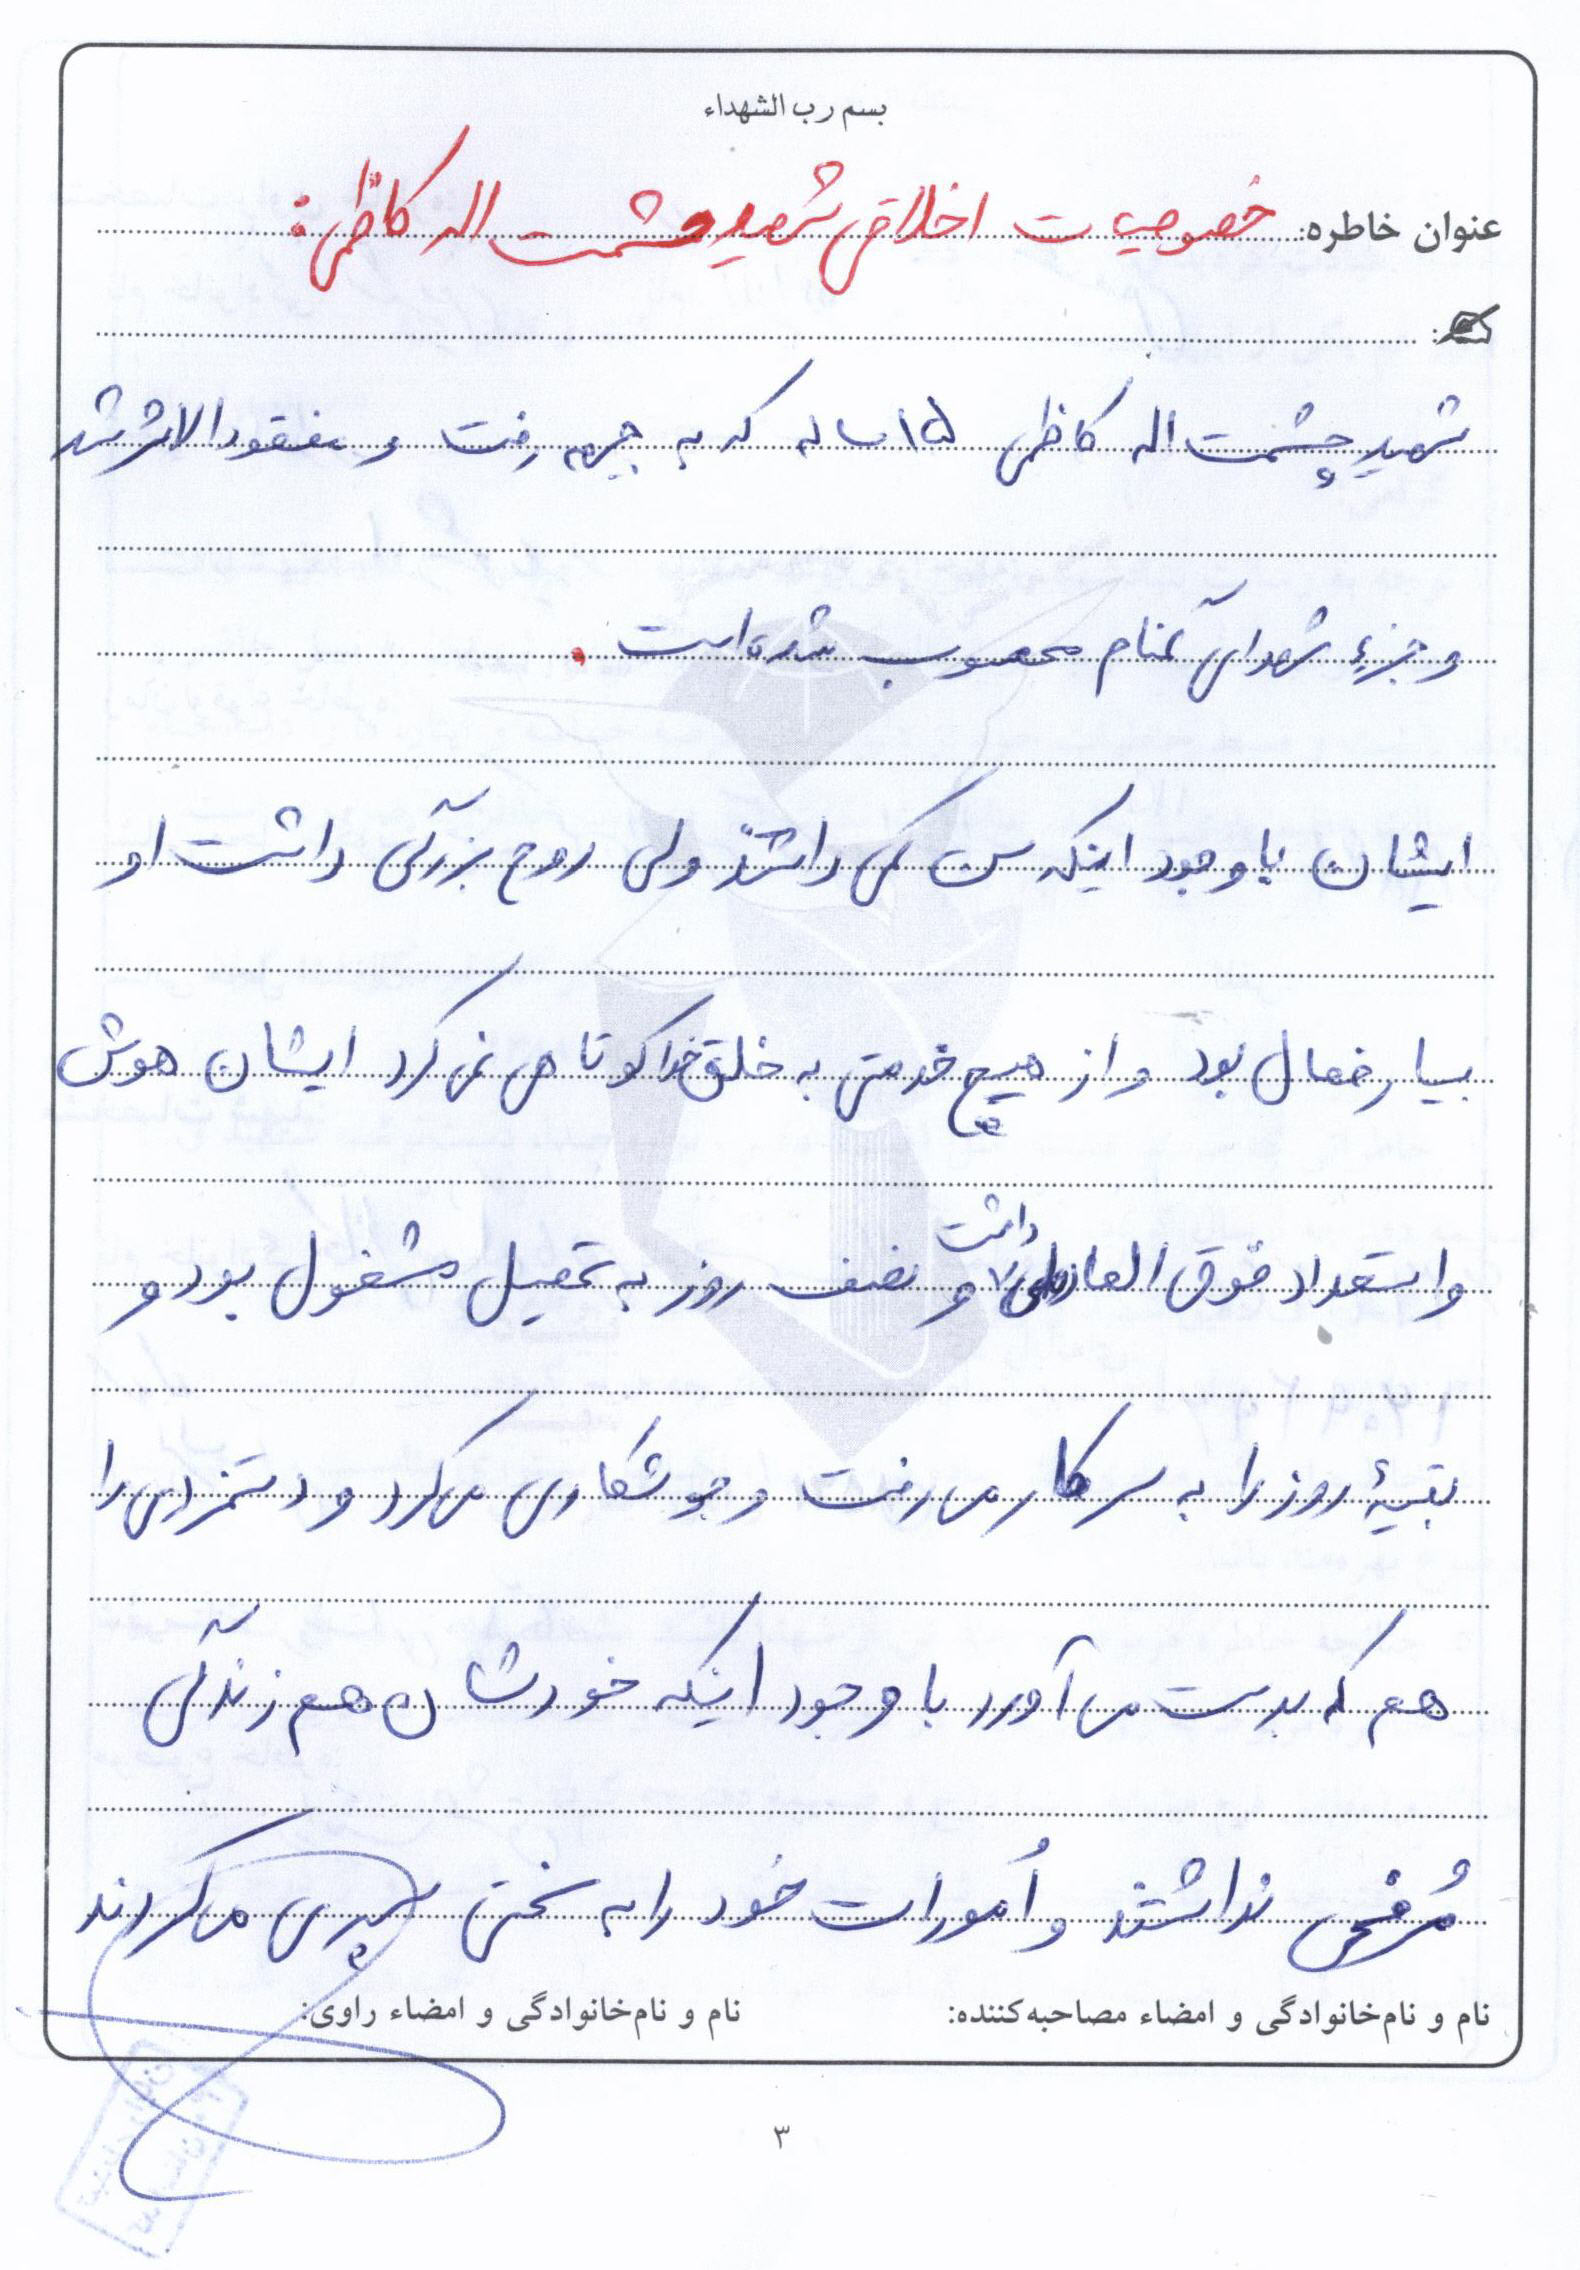 بسم رب الشهداء
عنوان خاطره: خصوصیات اخلاقی شهید حشمت اله کاظمی:
شهید حشمت اله کاظمی ۱۵ ساله که به جبهه رفت و مفقودالاثر شد
و جزءِ شهدای گمنام محصوب شده است.
ایشان با وجود اینکه سن کمی داشتند ولی روح بزرگی داشت او
بسیار فعال بود و از هیچ خدمتی به خلق خدا کوتاهی نمی کرد ایشان هوش
و استعداد فوق العاده‌ای داشت و نصف روز به تحصیل مشغول بود و
بقیهٔ روز را به سر کار می رفت و جوشکاری می کرد و دستمزدی را
هم که بدست می آورد با وجود اینکه خودشان هم زندگی
مُرفحی نداشتند و اُمورات خود را به سختی سپری می کردند
نام و نام‌خانوادگی و امضاء مصاحبه‌کننده: نام و نام‌خانوادگی و امضاء راوی:
۳